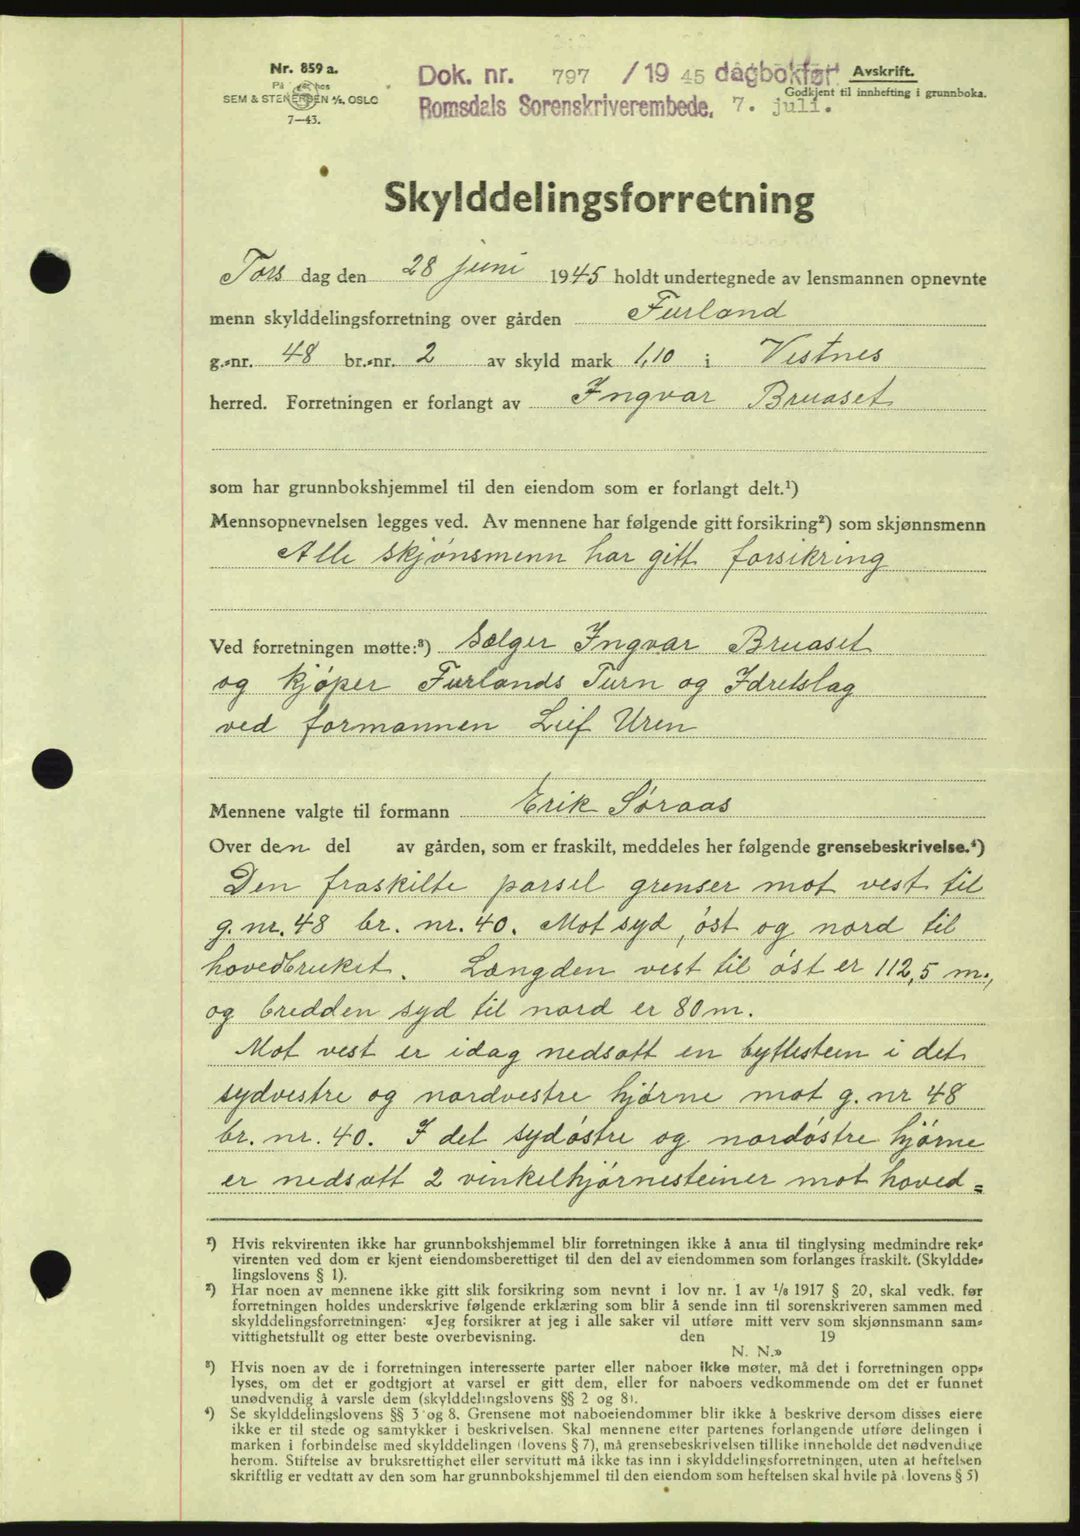 Nr. 859 a.
På lager hos
SEM & STENERSEN A/S, OSLO
7—43.
Dok. nr. 797 / 19 45 dagbokført
Avskrift.
Godkjent til innhefting i grunnboka.
Romsdals Sorenskriverembede, 7. juli.
Skylddelingsforretning
Tors dag den 28 juni 1945 holdt undertegnede av lensmannen opnevnte
menn skylddelingsforretning over gården Furland
g.-nr. 48 br.-nr. 2 av skyld mark 1,10 i Vestnes
herred. Forretningen er forlangt av Ingvar Bruaset
som har grunnbokshjemmel til den eiendom som er forlangt delt.¹)
Mennsopnevnelsen legges ved. Av mennene har følgende gitt forsikring²) som skjønnsmenn
Alle skjønsmenn har gitt forsikring
Ved forretningen møtte:³) Sælger Ingvar Bruaset
og kjøper Furlands Turn og Idretslag
ved formannen Leif Uren
Mennene valgte til formann Erik Søraas
Over den del av gården, som er fraskilt, meddeles her følgende grensebeskrivelse.⁴)
Den fraskilte parsel grenser mot vest til
g. nr. 48 br. nr. 40. Mot syd, øst og nord til
hovedbruket. Længden vest til øst er 112,5 m.,
og bredden syd til nord er 80 m.
Mot vest er idag nedsatt en byttestein i det
sydvestre og nordvestre hjørne mot g. nr 48
br. nr. 40. I det sydøstre og nordøstre hjørne
er nedsatt 2 vinkelhjørnesteiner mot hoved=
¹) Hvis rekvirenten ikke har grunnbokshjemmel blir forretningen ikke å anta til tinglysing medmindre rek-
virenten ved dom er kjent eiendomsberettiget til den del av eiendommen som forlanges fraskilt. (Skyldde-
lingslovens § 1).
²) Har noen av mennene ikke gitt slik forsikring som nevnt i lov nr. 1 av 1/6 1917 § 20, skal vedk. før
forretningen holdes underskrive følgende erklæring som blir å sende inn til sorenskriveren sammen med
skylddelingsforretningen: «Jeg forsikrer at jeg i alle saker vil utføre mitt verv som skjønnsmann sam-
vittighetsfullt og etter beste overbevisning. den 19
N. N.»
³) Hvis noen av de i forretningen interesserte parter eller naboer ikke møter, må det i forretningen opp-
lyses, om det er godtgjort at varsel er gitt dem, eller for naboers vedkommende om det er funnet
unødvendig å varsle dem (skylddelingslovens §§ 2 og 8).
⁴) Se skylddelingslovens §§ 3 og 8. Grensene mot naboeiendommer blir ikke å beskrive dersom disses eiere
ikke er til stede og samtykker i beskrivelsen. Skal mennene etter partenes forlangende utføre delingen i
marken i forbindelse med skylddelingen (lovens § 7), må grensebeskrivelsen tillike inneholde det nødvendige
herom. Stiftelse av bruksrettighet eller servitutt må ikke tas inn i skylddelingsforretningen, uten at heftelsen
skriftlig er vedtatt av den som har grunnbokshjemmel til den eiendom som heftelsen skal hvile på (lovens § 5)